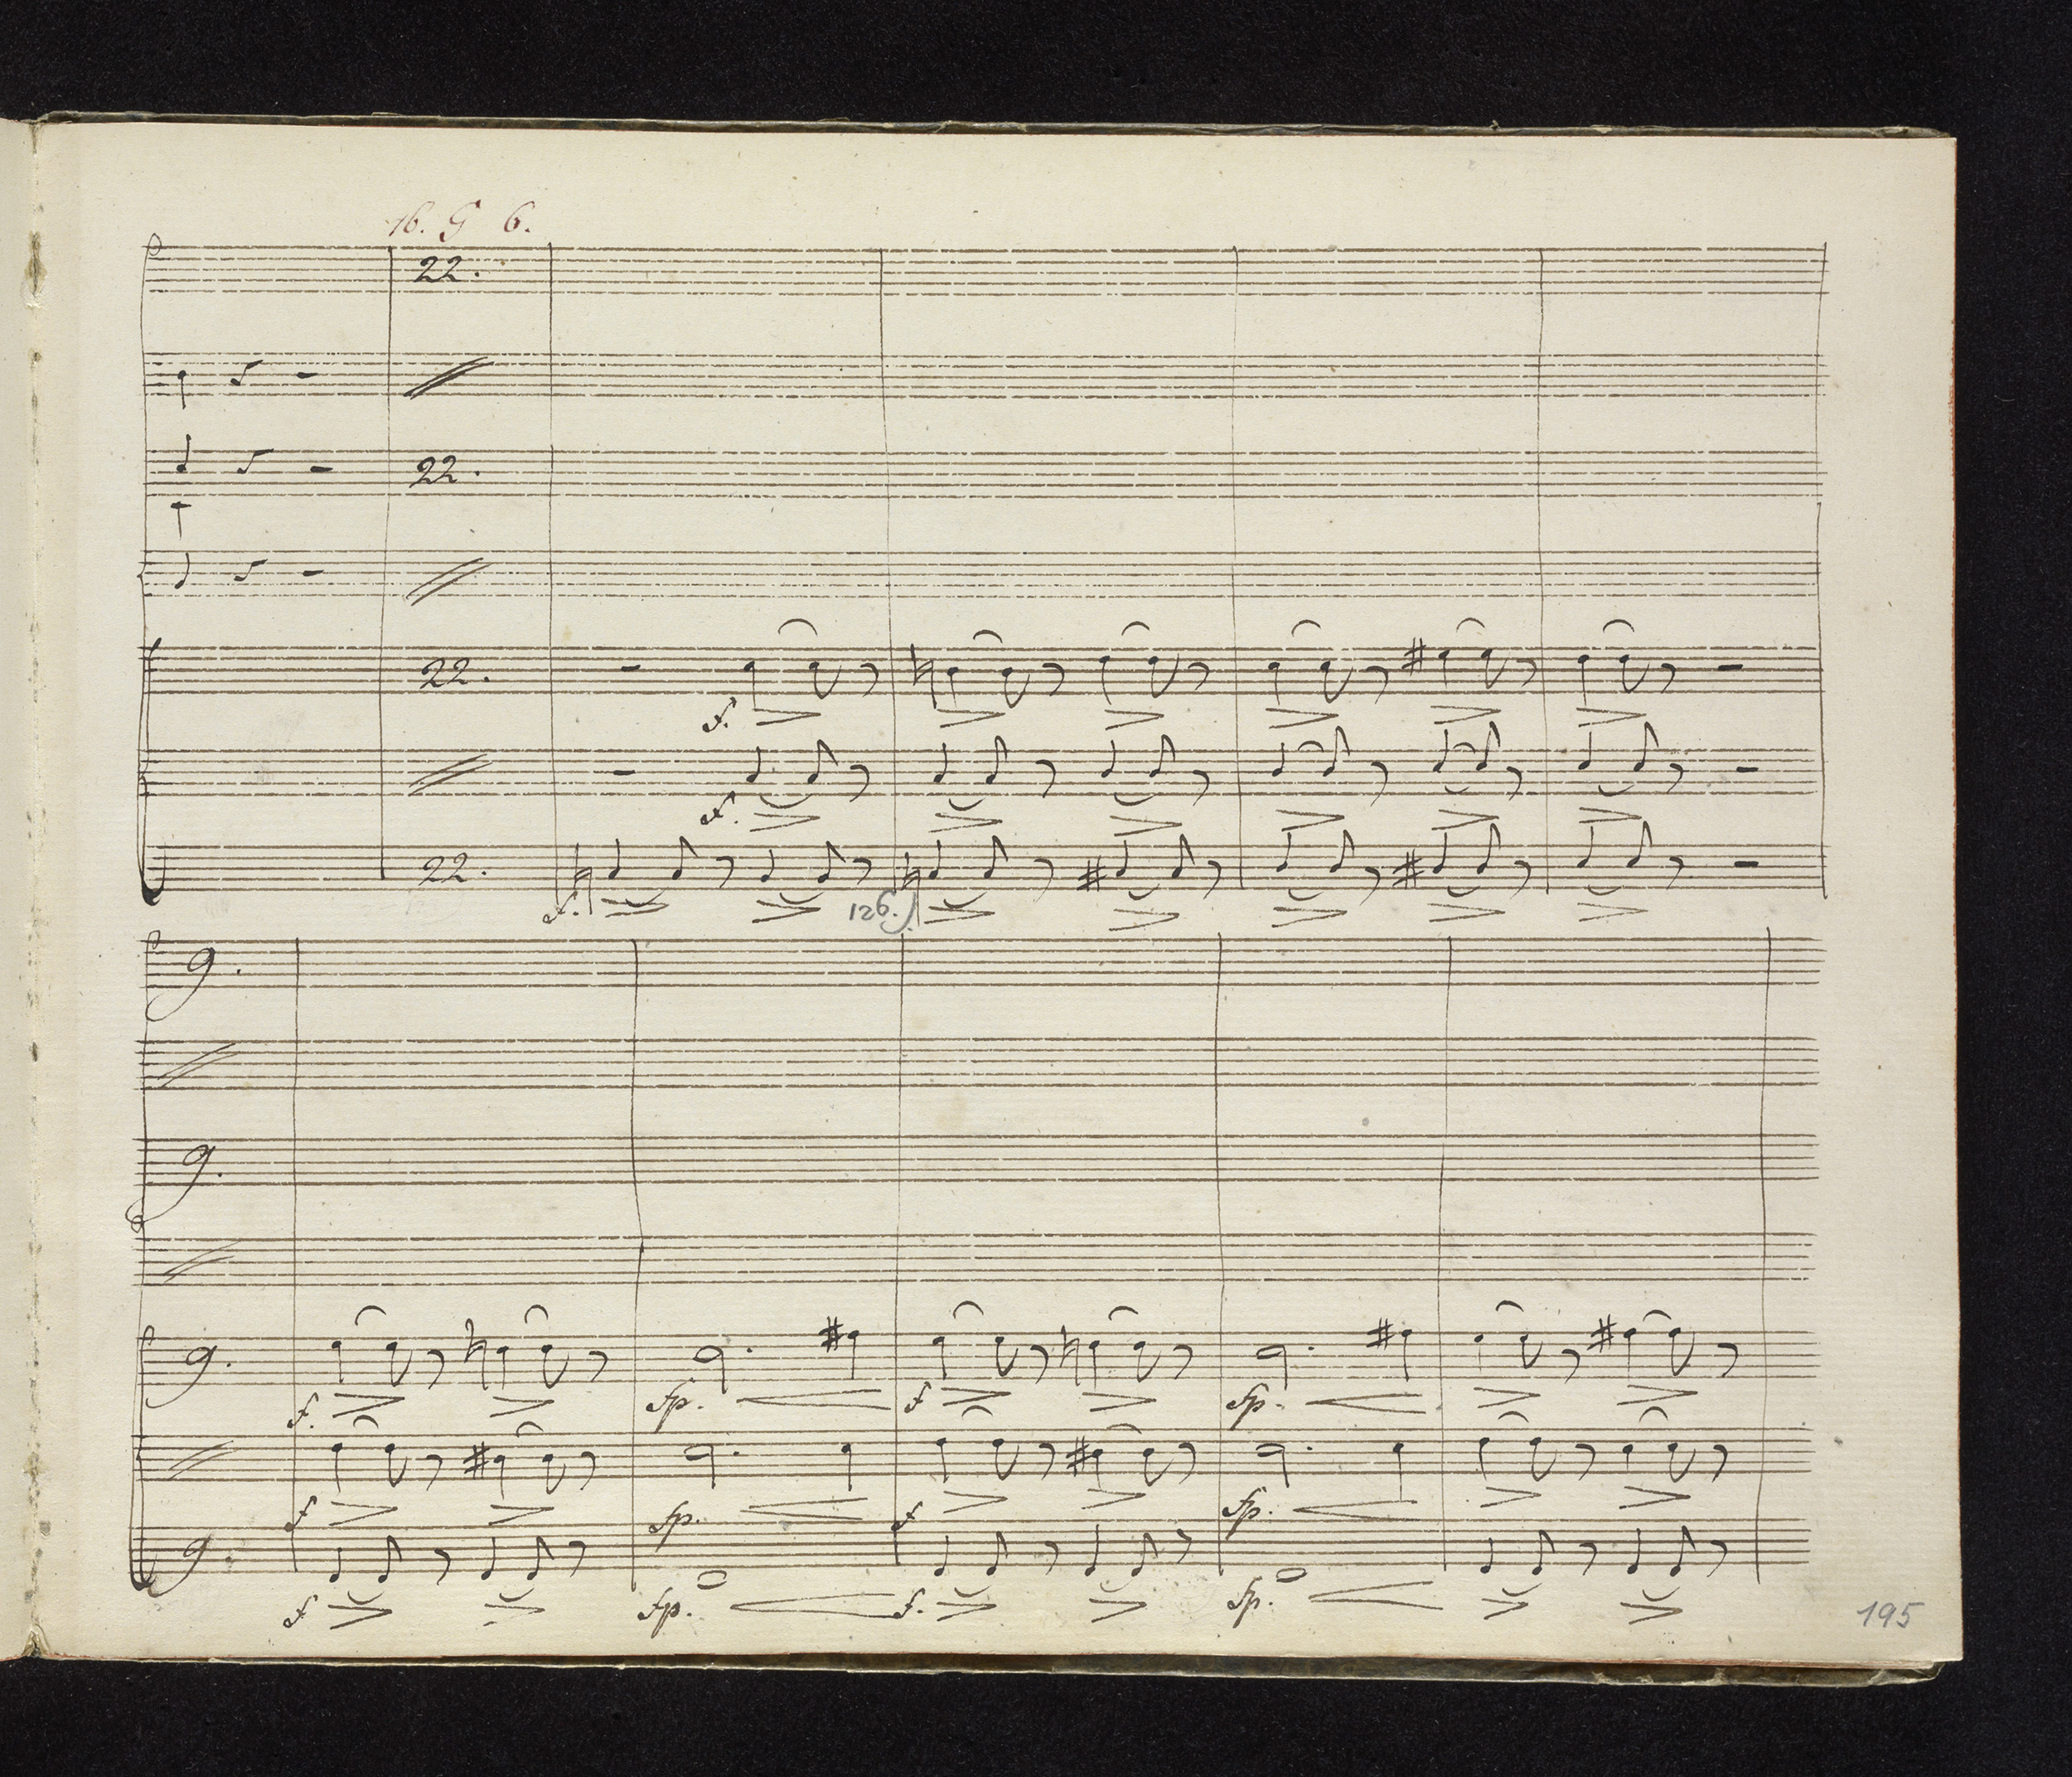 16. G 6.
22.
22.
22.
f.
f.
22.
f.
126.
9.
9.
9.
f. fp. f fp.
f fp. f fp.
9.
f fp. f. fp.
195